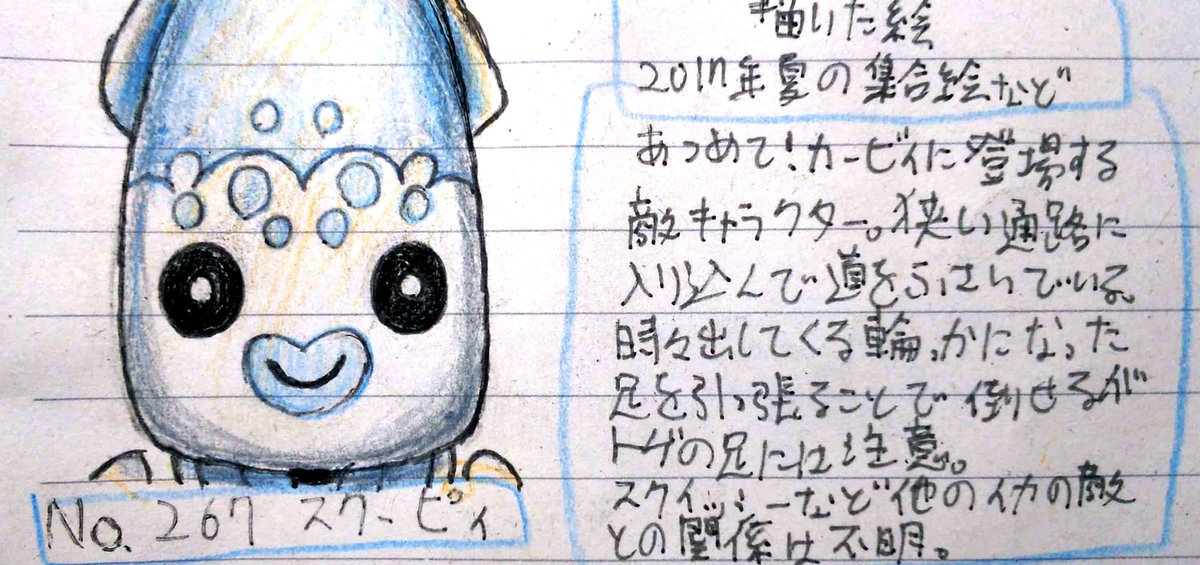 描いた絵
2017年夏の集合絵など
あつめて!カービィに登場する
敵キャラクター。狭い通路に
入り込んで道をふさいでいる。
時々出してくる輪っかになった
足を引っ張ることで倒せるが
トゲの足には注意。
スクイッシーなど他のイカの敵
との関係は不明。
No.267 スクービィ